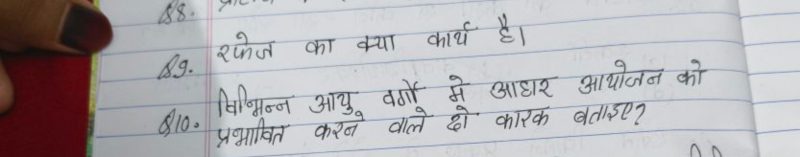 Q8.
Q9. रफेज का क्या कार्य है।
Q10. विभिन्न आयु वर्गों मे आहार आयोजन को
प्रभावित करने वाले दो कारक बताइए?